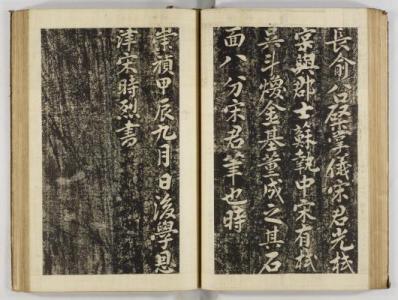 長俞石啓掌儀宋君光栻
寀與郡士蘇執中宋有栻
吳斗熒金基薰成之其石
面八分宋君筆也時
崇禎甲辰九月日後學恩
津宋時烈書